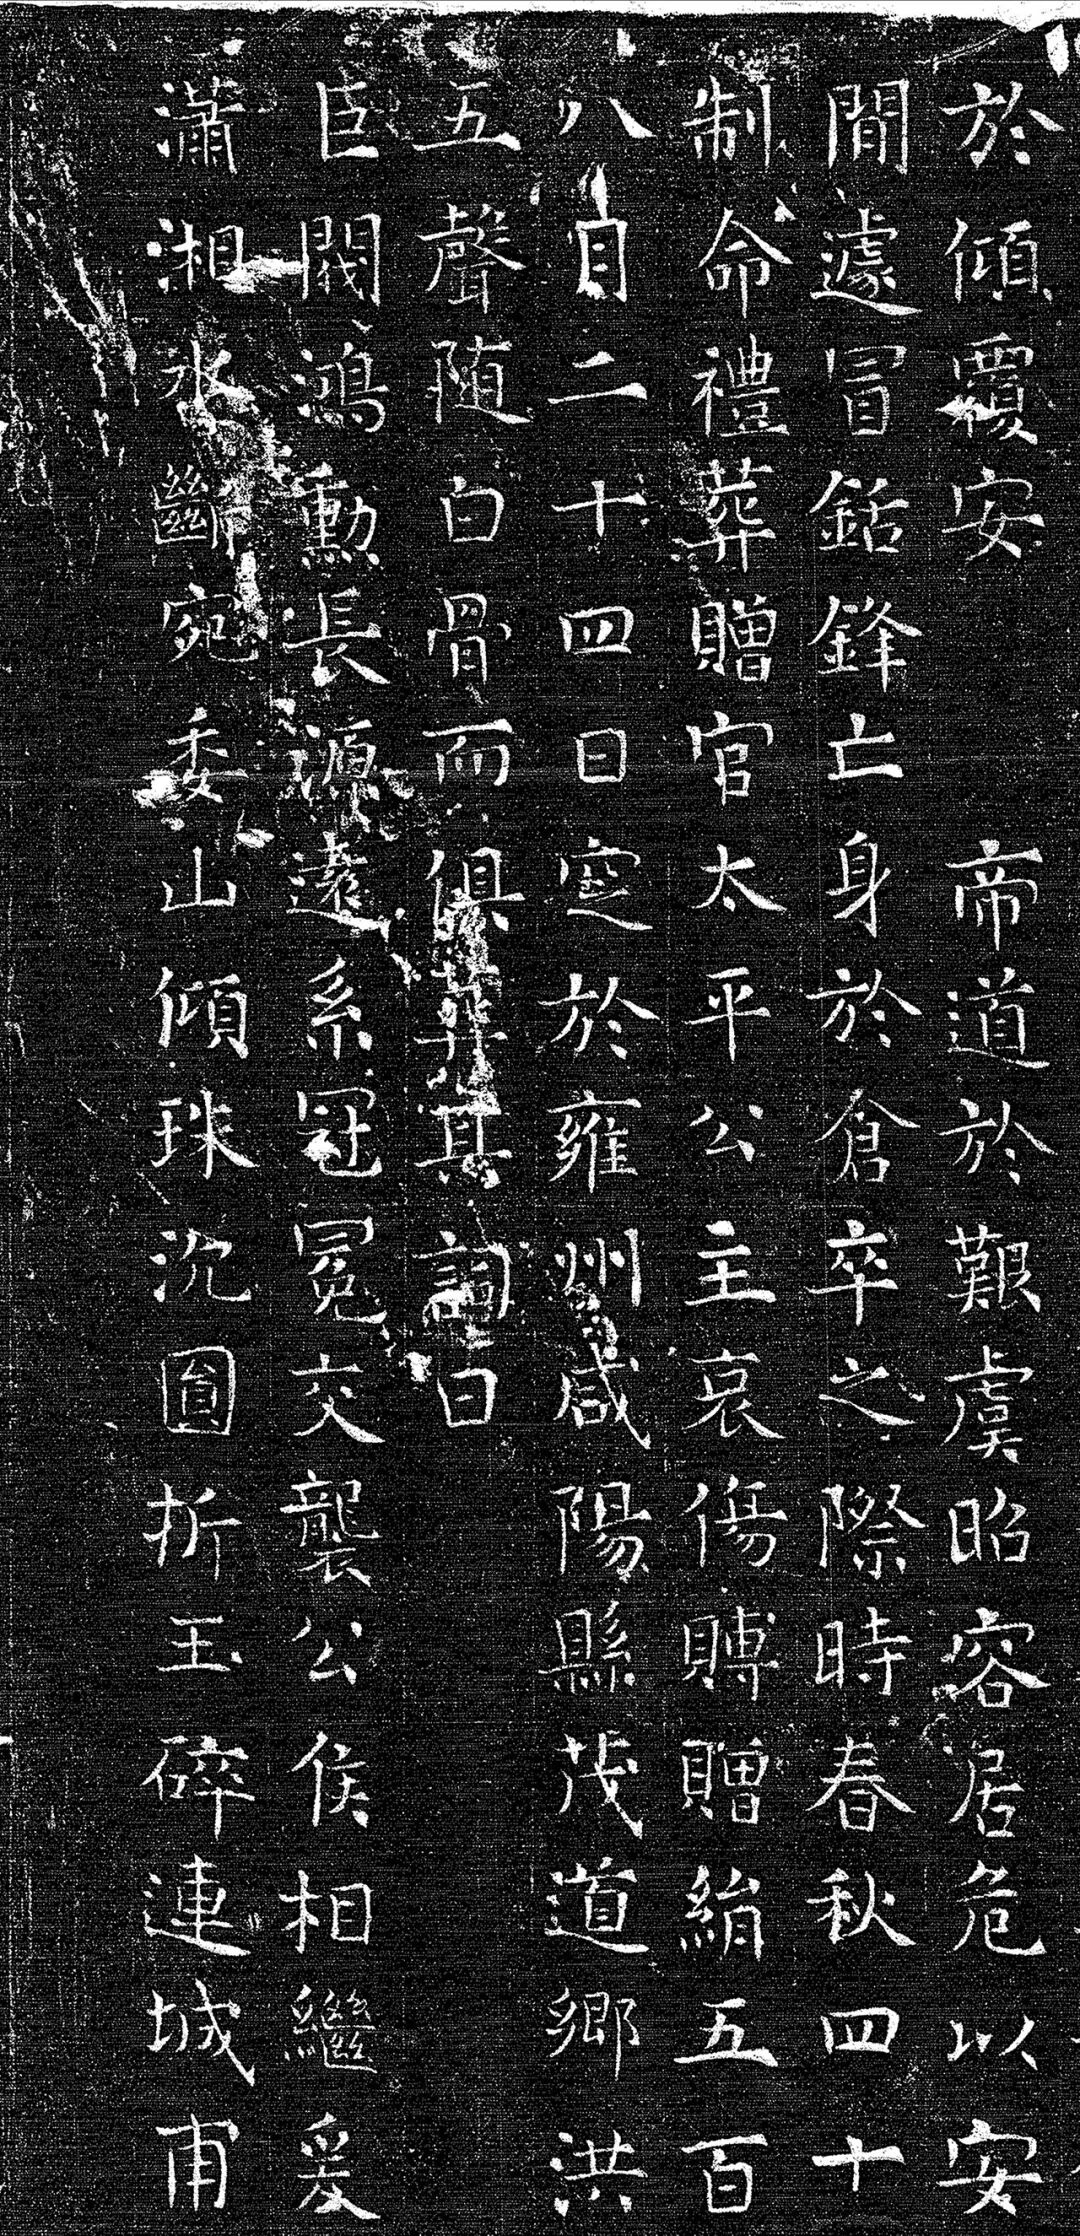 於傾覆安 帝道於艱虞昭容居危以安
間遽冒銛鋒亡身於倉卒之際時春秋四十
制命禮葬贈官太平公主哀傷賻贈絹五百
八月二十四日窆於雍州咸陽縣茂道鄉洪
五聲随白骨而俱葬其詞曰
巨閥鴻勳長源遠系冠冕交襲公侯相繼爰
瀟湘水斷宛委山傾珠沉圓折玉碎連城甫